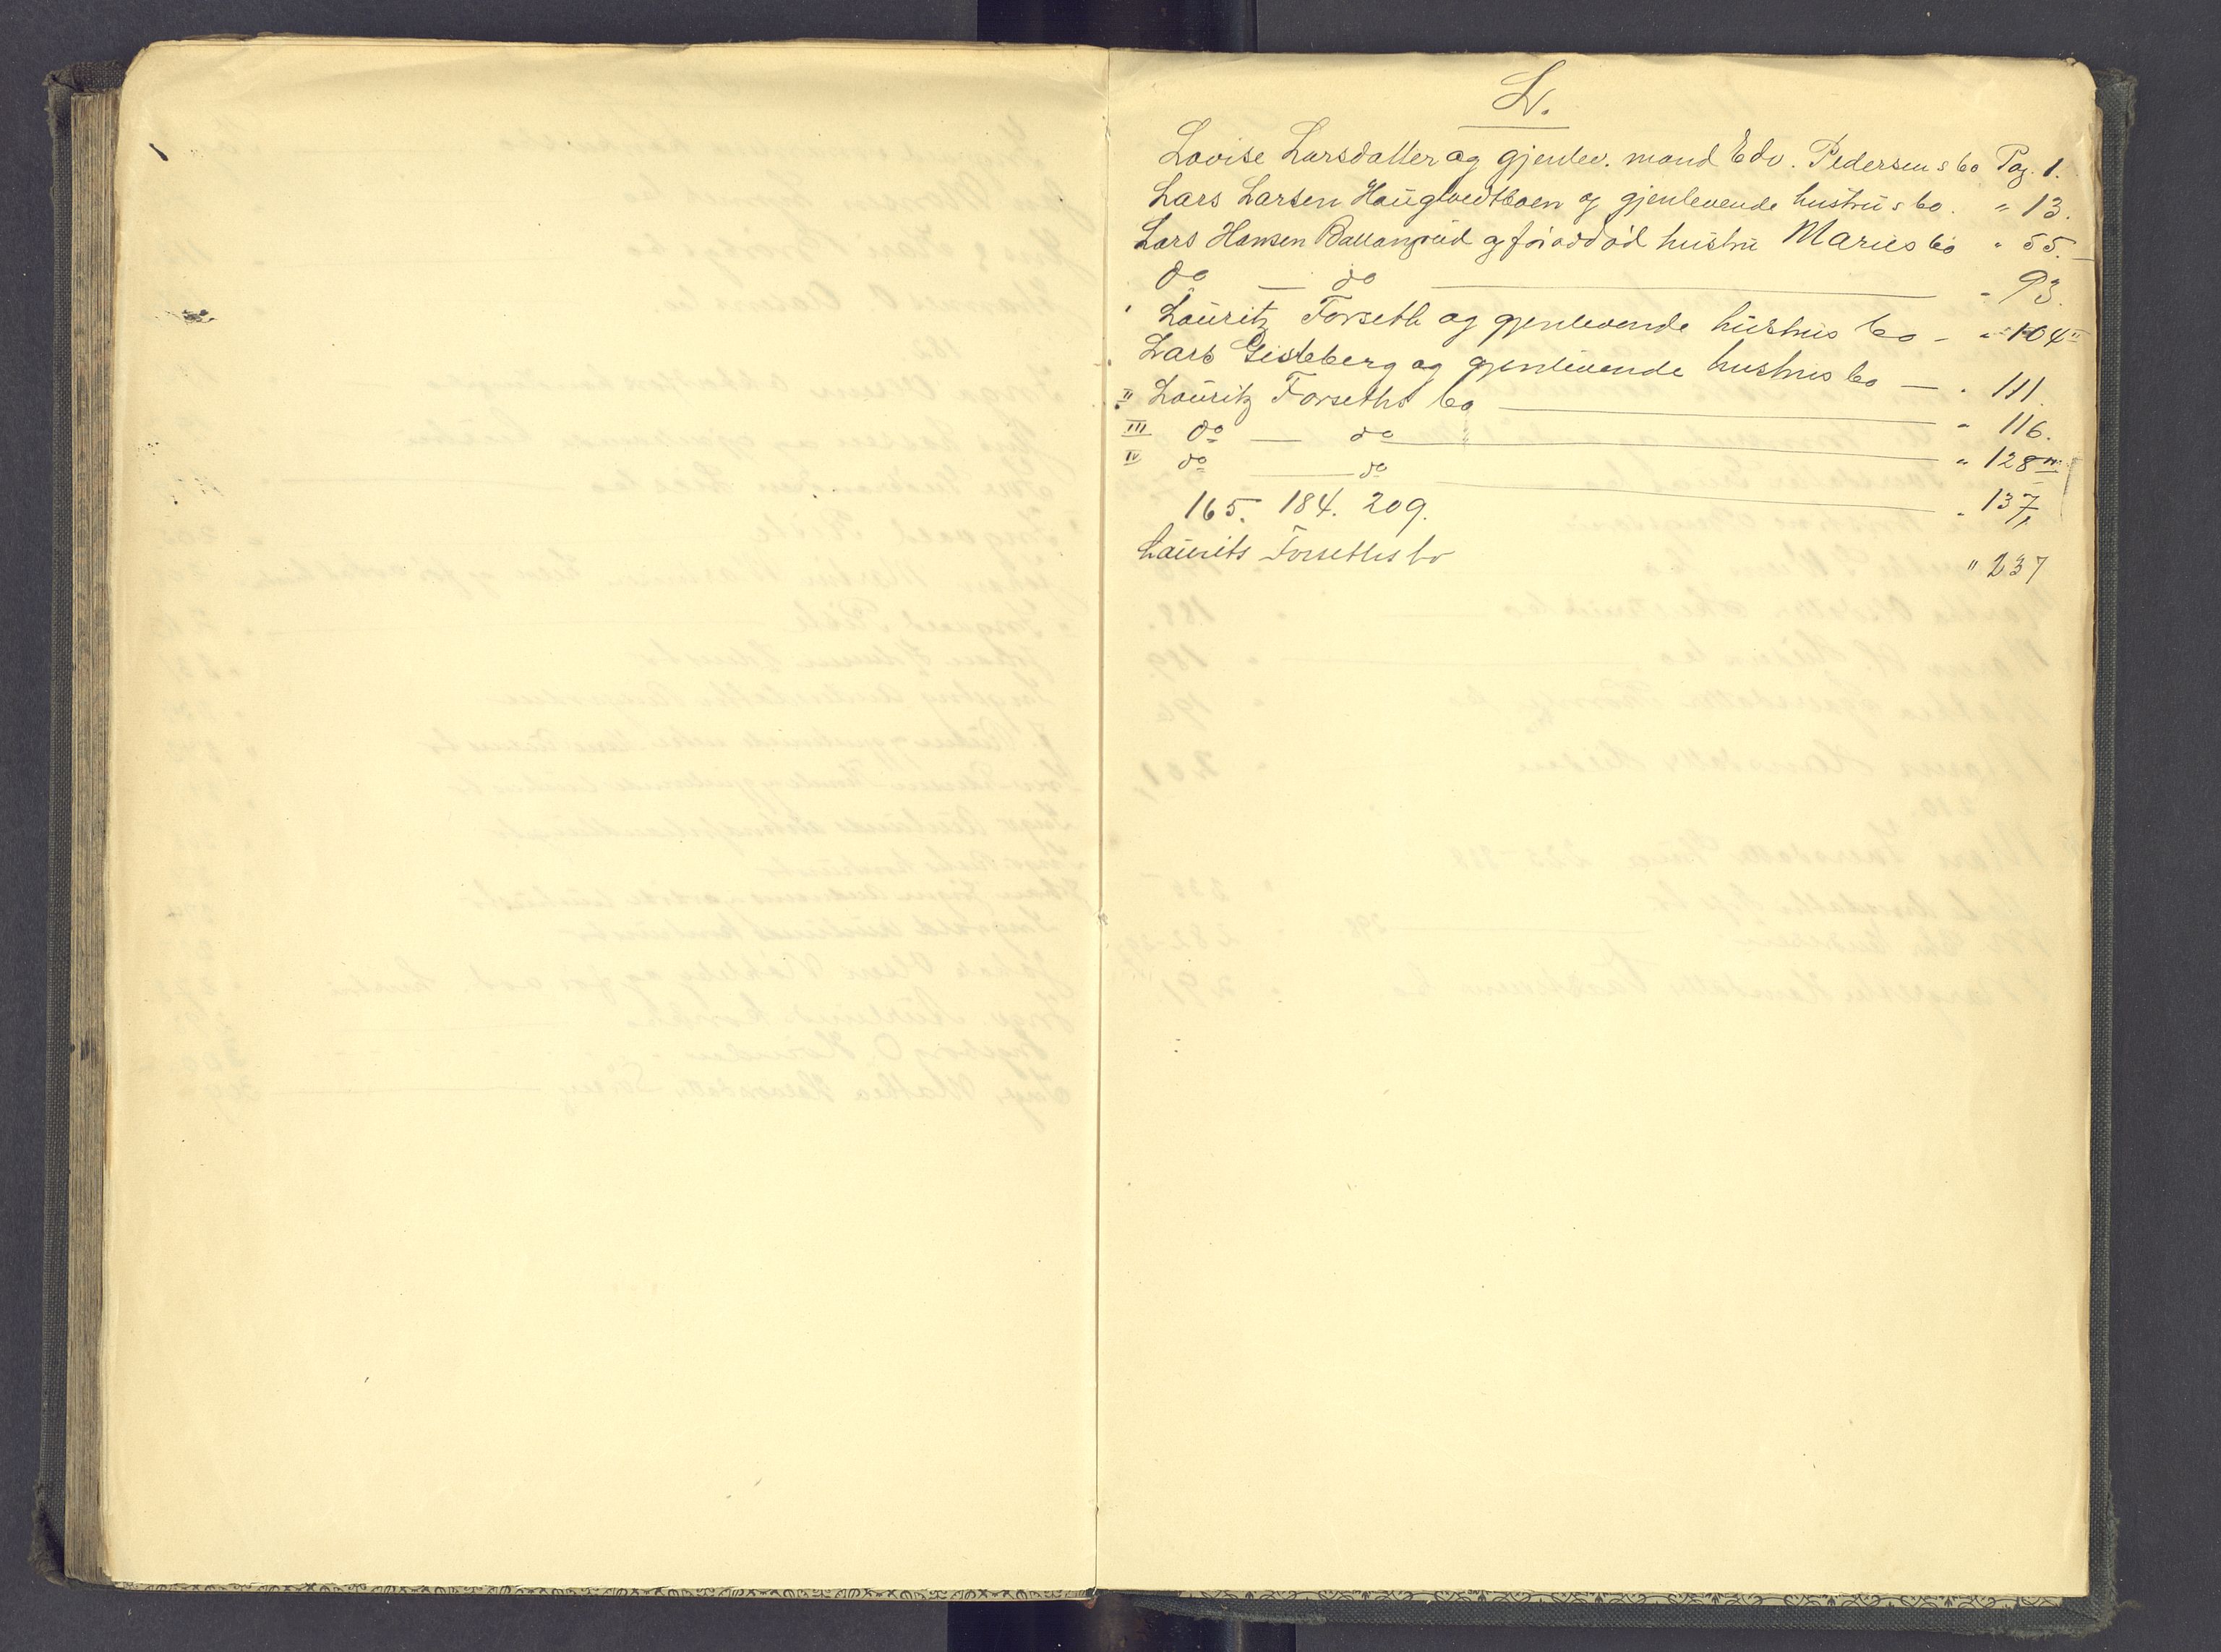 L.
Lovise Larsdatter og gjenlev. mand Edv. Pedersens bo Pag. 1.
Lars Larsen Haugtvedtbaen og gjenlevende hustrus bo. " 13.
Lars Hansen Ballangrud og forøddød hustru Maries bo " 55.
do — do — " 93.
Lauritz Forseth og gjenlevende hustrus bo - " 104 II
Lars Gisleberg og gjenlevende hustrus bo — " 111.
II Lauritz Forseths bo — " 116.
III do — do — " 128 IV
IV do — do — " 137,
165. 184. 209.
Laurits Forseths bo " 237